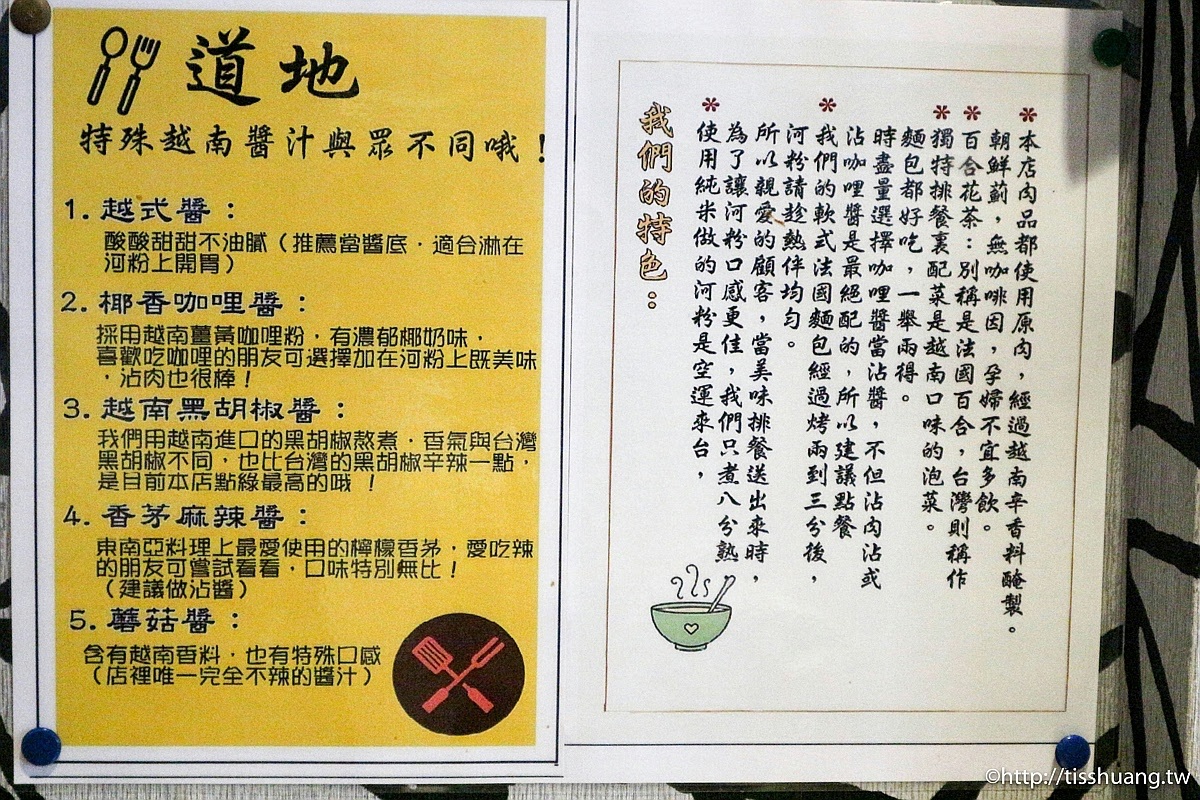 道地
特殊越南醬汁與眾不同哦！
1.越式醬：
酸酸甜甜不油膩（推薦當醬底，適合淋在
河粉上開胃）
2.椰香咖哩醬：
採用越南薑黃咖哩粉，有濃郁椰奶味，
喜歡吃咖哩的朋友可選擇加在河粉上既美味
，沾肉也很棒！
3.越南黑胡椒醬：
我們用越南進口的黑胡椒熬煮，香氣與台灣
黑胡椒不同，也比台灣的黑胡椒辛辣一點，
是目前本店點綠最高的哦！
4.香茅麻辣醬：
東南亞料理上最愛使用的檸檬香茅，愛吃辣
的朋友可嘗試看看，口味特別無比！
（建議做沾醬）
5.蘑菇醬：
含有越南香料，也有特殊口感
（店裡唯一完全不辣的醬汁）
*本店肉品都使用原肉，經過越南辛香料醃製。
朝鮮薊，無咖啡因，孕婦不宜多飲。
*百合花茶：別稱是法國百合，台灣則稱作
*獨特排餐裏配菜是越南口味的泡菜。
麵包都好吃，一舉兩得。
時盡量選擇咖哩醬當沾醬，不但沾肉沾或
沾咖哩醬是最絕配的，所以建議點餐
*我們的軟式法國麵包經過烤兩到三分後，
河粉請趁熱伴均勻。
所以親愛的顧客，當美味排餐送出來時，
為了讓河粉口感更佳，我們只煮八分熟
*使用純米做的河粉是空運來台，
我們的特色：
©http://tisshuang.tw